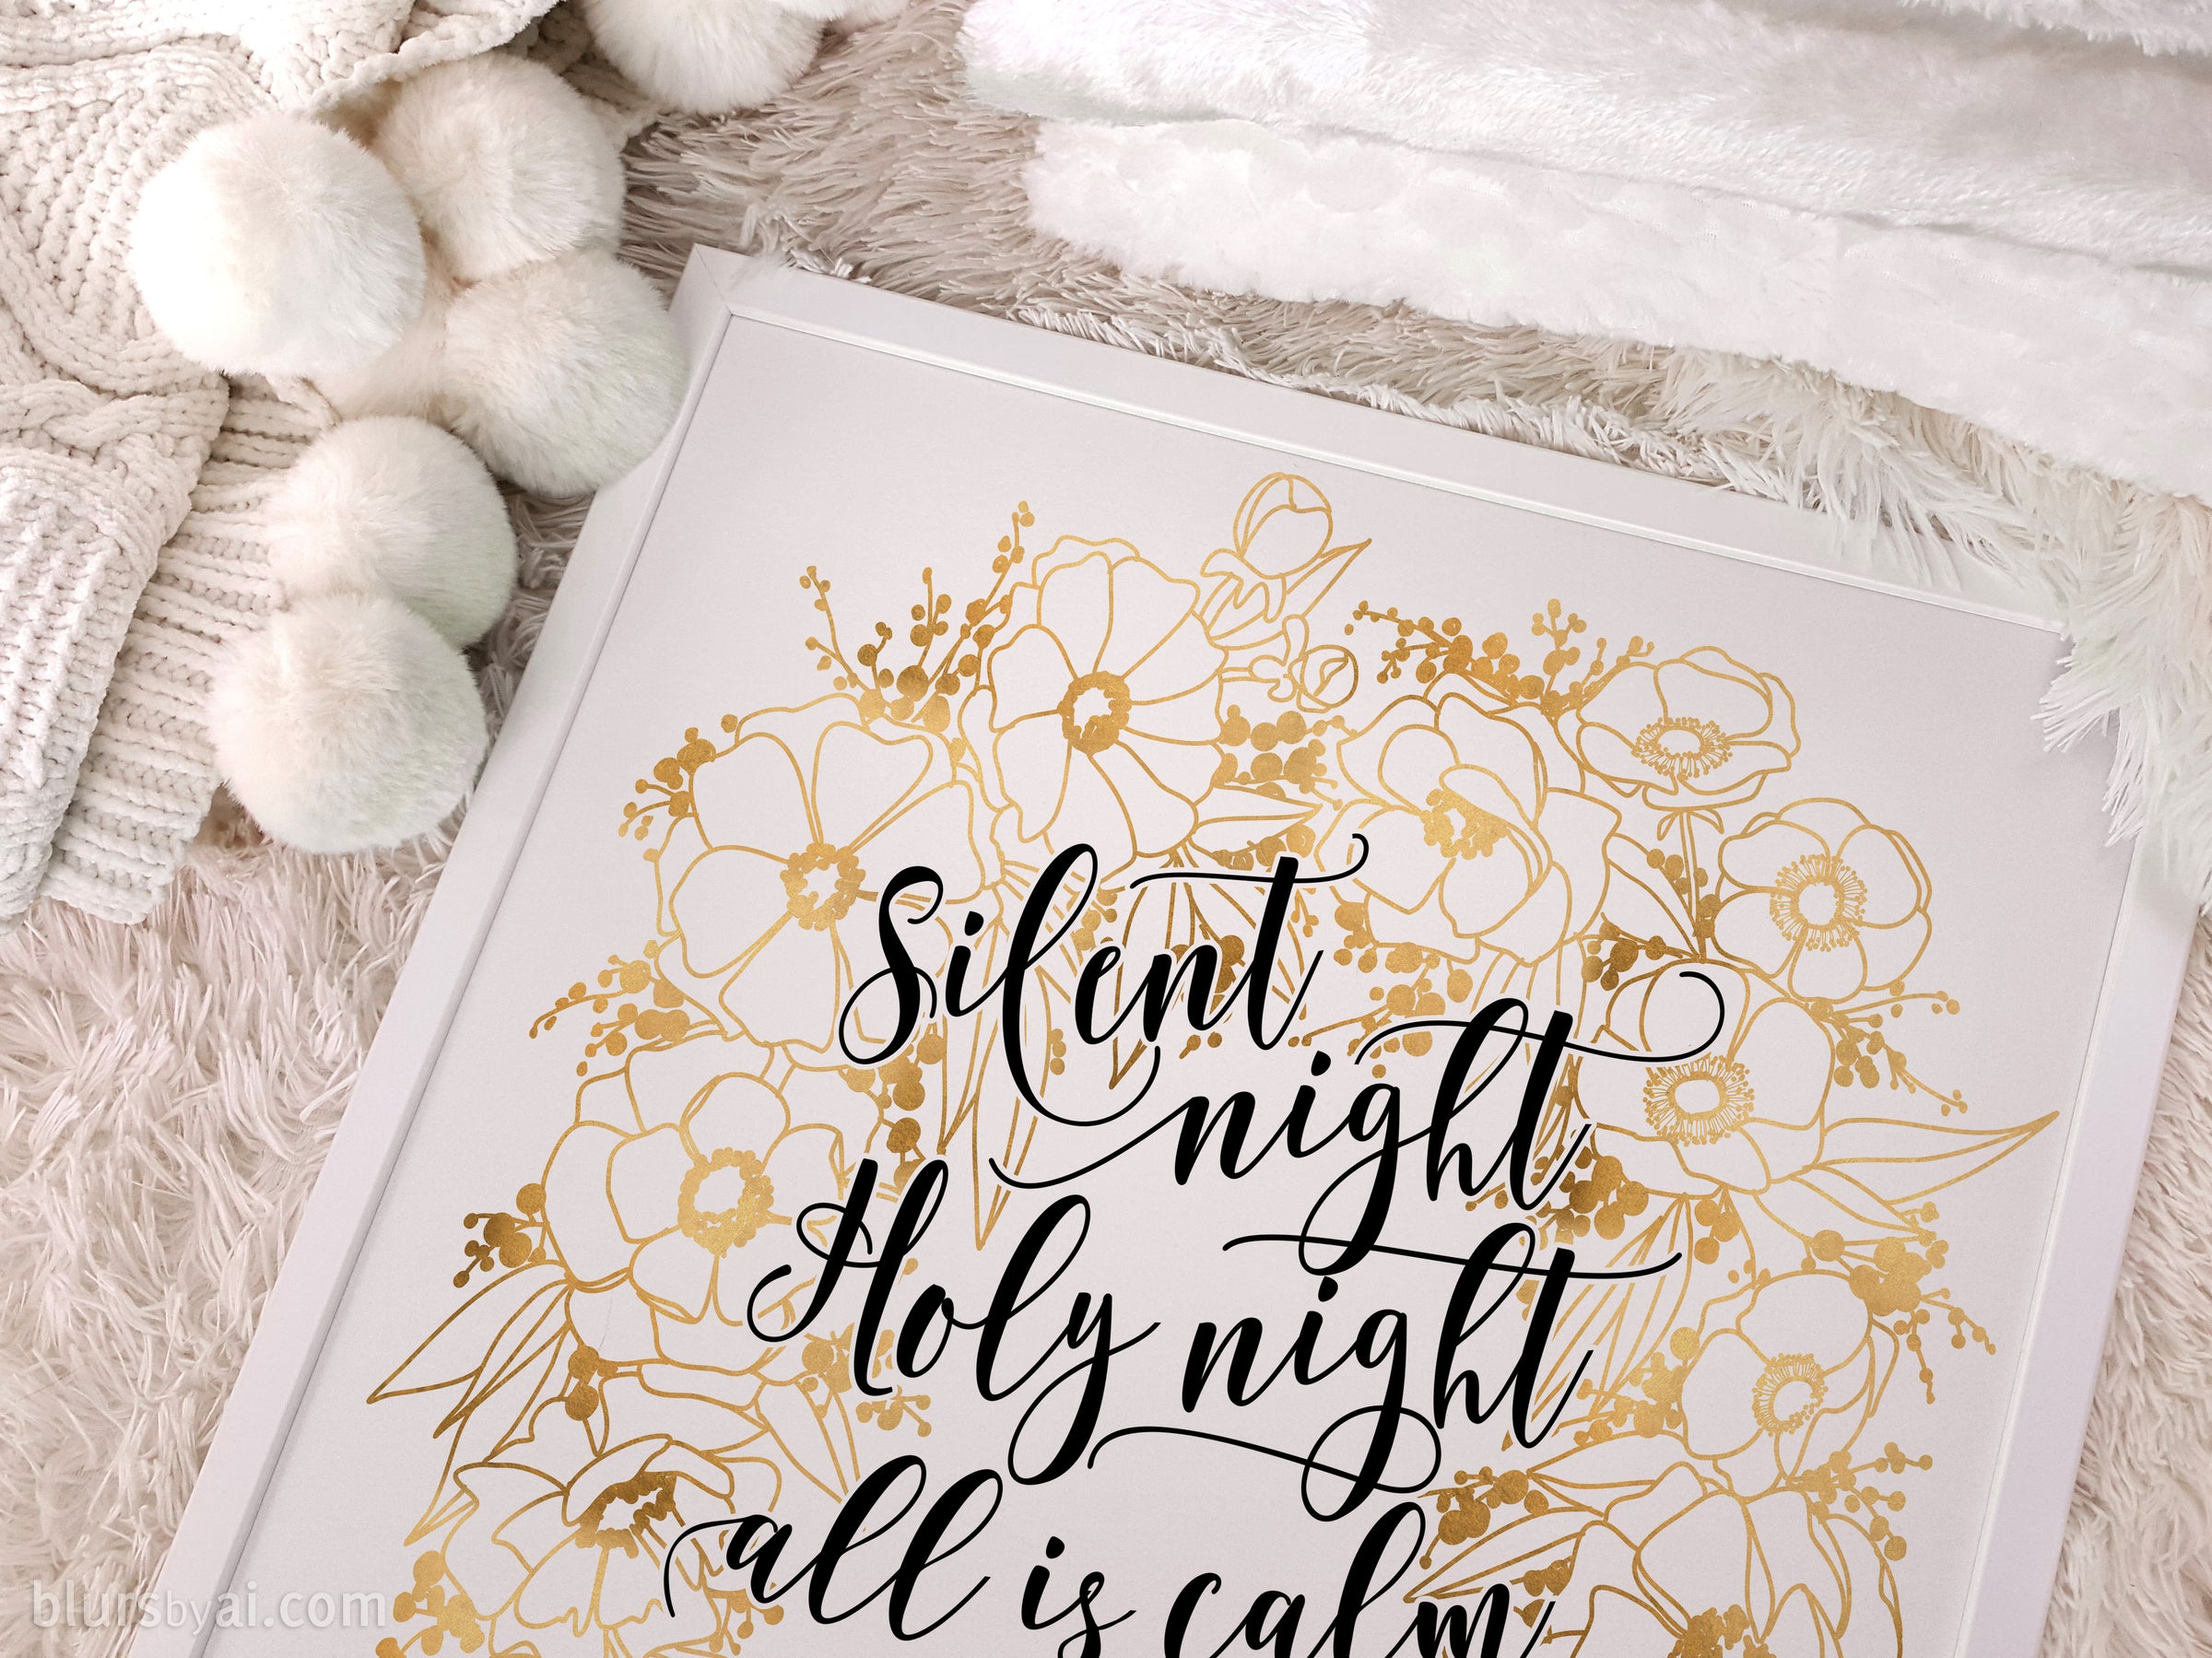 Silent
night
Holy night
all is calm
blursbyai.com